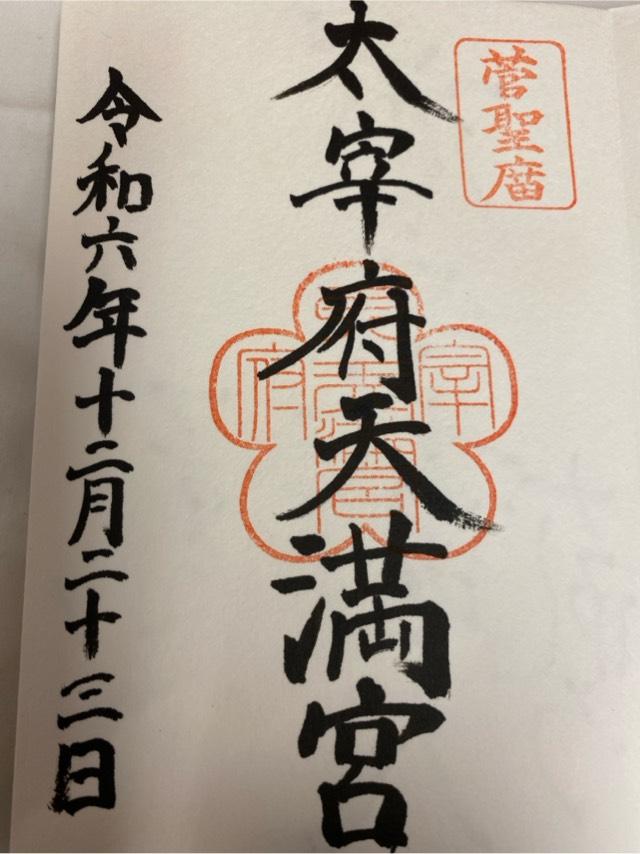 菅聖庿
太宰府天満宮
令和六年十二月二十三日